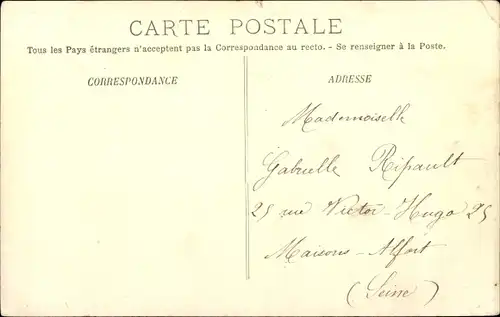 CARTE POSTALE
Tous les Pays étrangers n'acceptent pas la Correspondance au recto. - Se renseigner à la Poste.
CORRESPONDANCE
ADRESSE
Mademoiselle
Gabrielle Ripault
25 rue Victor-Hugo 25
Maisons-Alfort
(Seine)